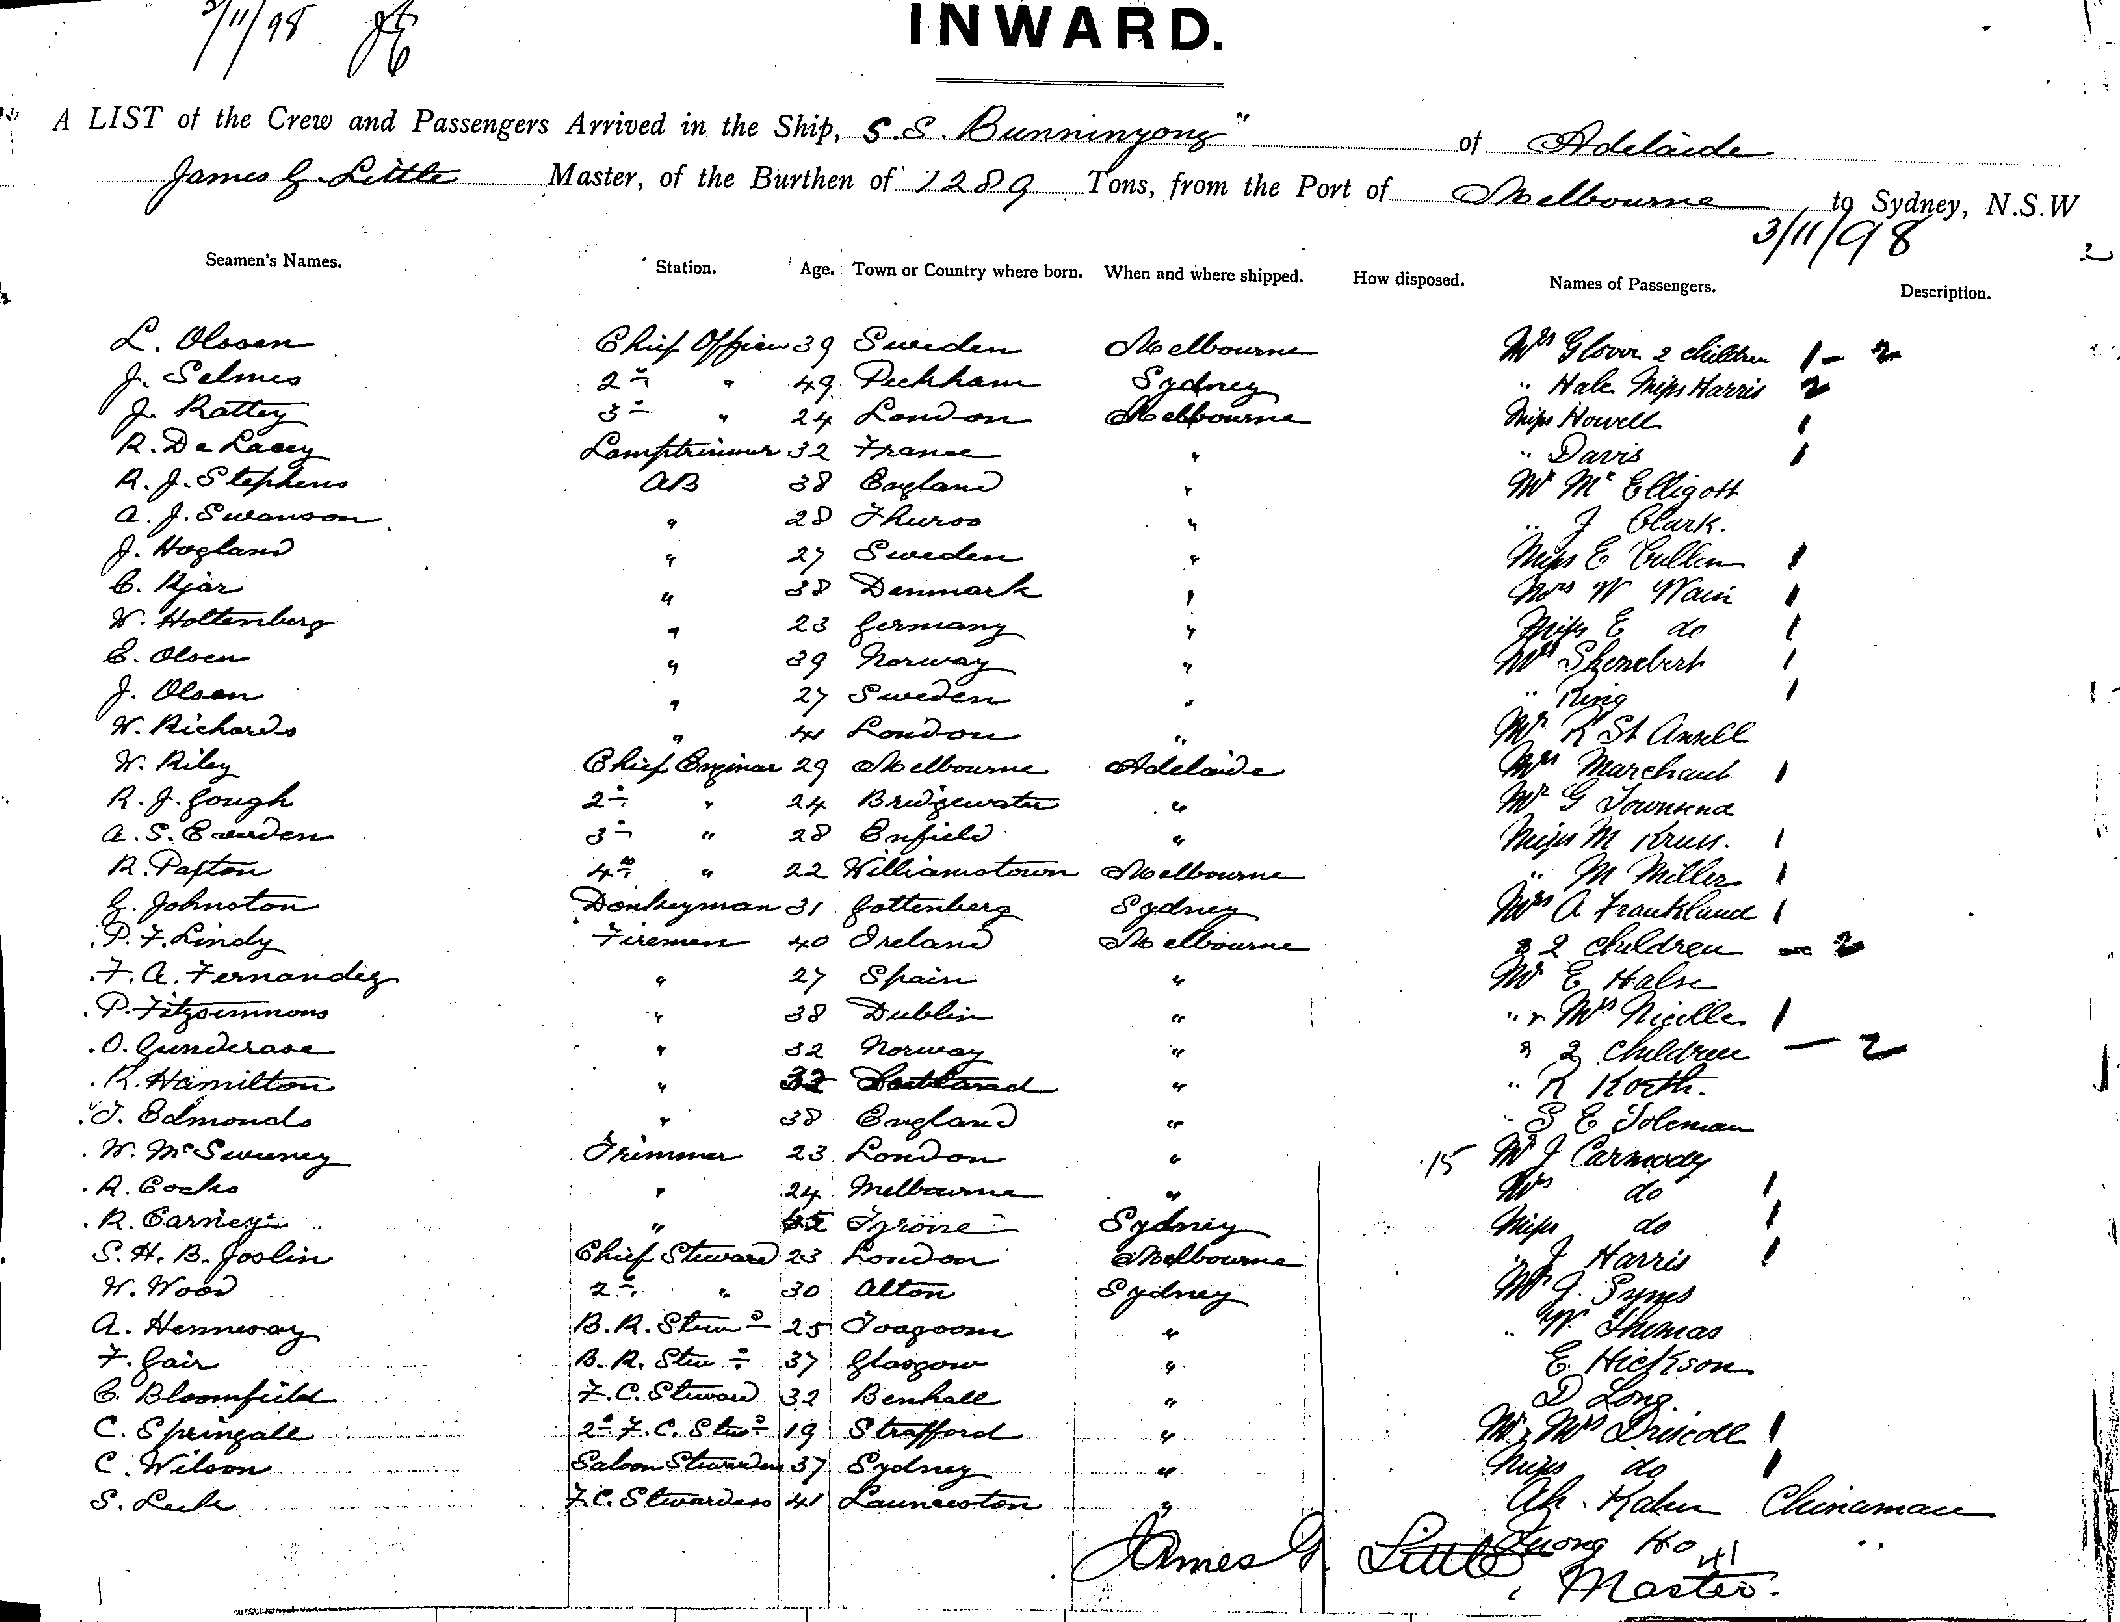 3/11/98
INWARD.
A LIST of the Crew and Passengers Arrived in the Ship, S.S. Bunninyong" of Adelaide
James G. Little Master, of the Burthen of 1289 Tons, from the Port of Melbourne to Sydney, N.S.W
3/11/98
Seamen's Names. Station. Age. Town or Country where born. When and where shipped. How disposed. Names of Passengers. Description.
L. Olssen Chief Officer 39 Sweden Melbourne Mrs Glover 2 children 1 - 2
J. Selmes 2nd " 49 Peckham Sydney " Hale Miss Harris 2
J. Rattey 3rd " 24 London Melbourne Miss Howell 1
R. De Lacey Lamptrimmer 32 France " " Davis 1
R. J. Stephens AB 38 England " Mr McElligott
A. J. Swanson " 28 Thurso " " J Clark.
J. Hogland " 27 Sweden " Miss E Cullen 1
C. Kjar " 38 Denmark " Mrs W Wain 1
W. Holtenberg " 23 Germany " Miss E do 1
E. Olsen " 39 Norway " Mrs 1
J. Olsen " 27 Sweden " " King 1
W. Richards " 41 London " Mr R St Ansell
W. Riley Chief Enginer 29 Melbourne Adelaide Mrs Marchant 1
R. J. Gough 2nd " 24 Bridgewater " Mr G Townsend
A. S. 3rd " 28 Enfield " Miss M Kruss. 1
R. Paxton 4th " 22 Williamstown Melbourne " M Miller 1
G. Johnston Donkeyman 31 Gottenberg Sydney Mrs A Frankland 1
P. F. Lindy Firemen 40 Ireland Melbourne & 2 children - 2
F. A. Fernandez " 27 Spain " Mr E Halse
P. Fitzsimmons " 38 Dublin " " & Mrs 1
O. Gunderase " 32 Norway " & 2 children - 2
R. Hamilton " 32 " " R Korth.
T. Edmonds " 38 England " " S E Toleman
W. McSweeney Trimmer 23 London " 15 Mr J Carmody
R. Cocks " 24 Melbourne " Mrs do 1
R. Carney " Tyrone Sydney Miss do 1
S. H. B. Joslin Chief Steward 23 London Melbourne " J Harris 1
W. Wood 2nd " 30 Alton Sydney Mr J. Symes
A. Henneway B. R. Stewd 25 " " W Thomas
F. Gair B. R. Stew 37 Glasgow " E Hickson
C Bloomfield F. C. Steward 32 Benhall " D Long.
C. Springall 2nd F. C. Stewd 19 Strafford " Mr & Mrs Driscoll 1
C. Wilson Saloon Stewardess 37 Sydney " Miss do 1
S. Leek F.C. Stewardess 41 Launceston " Ah. Kahn Chinaman
Quong Ho "
James G. Little
Master.